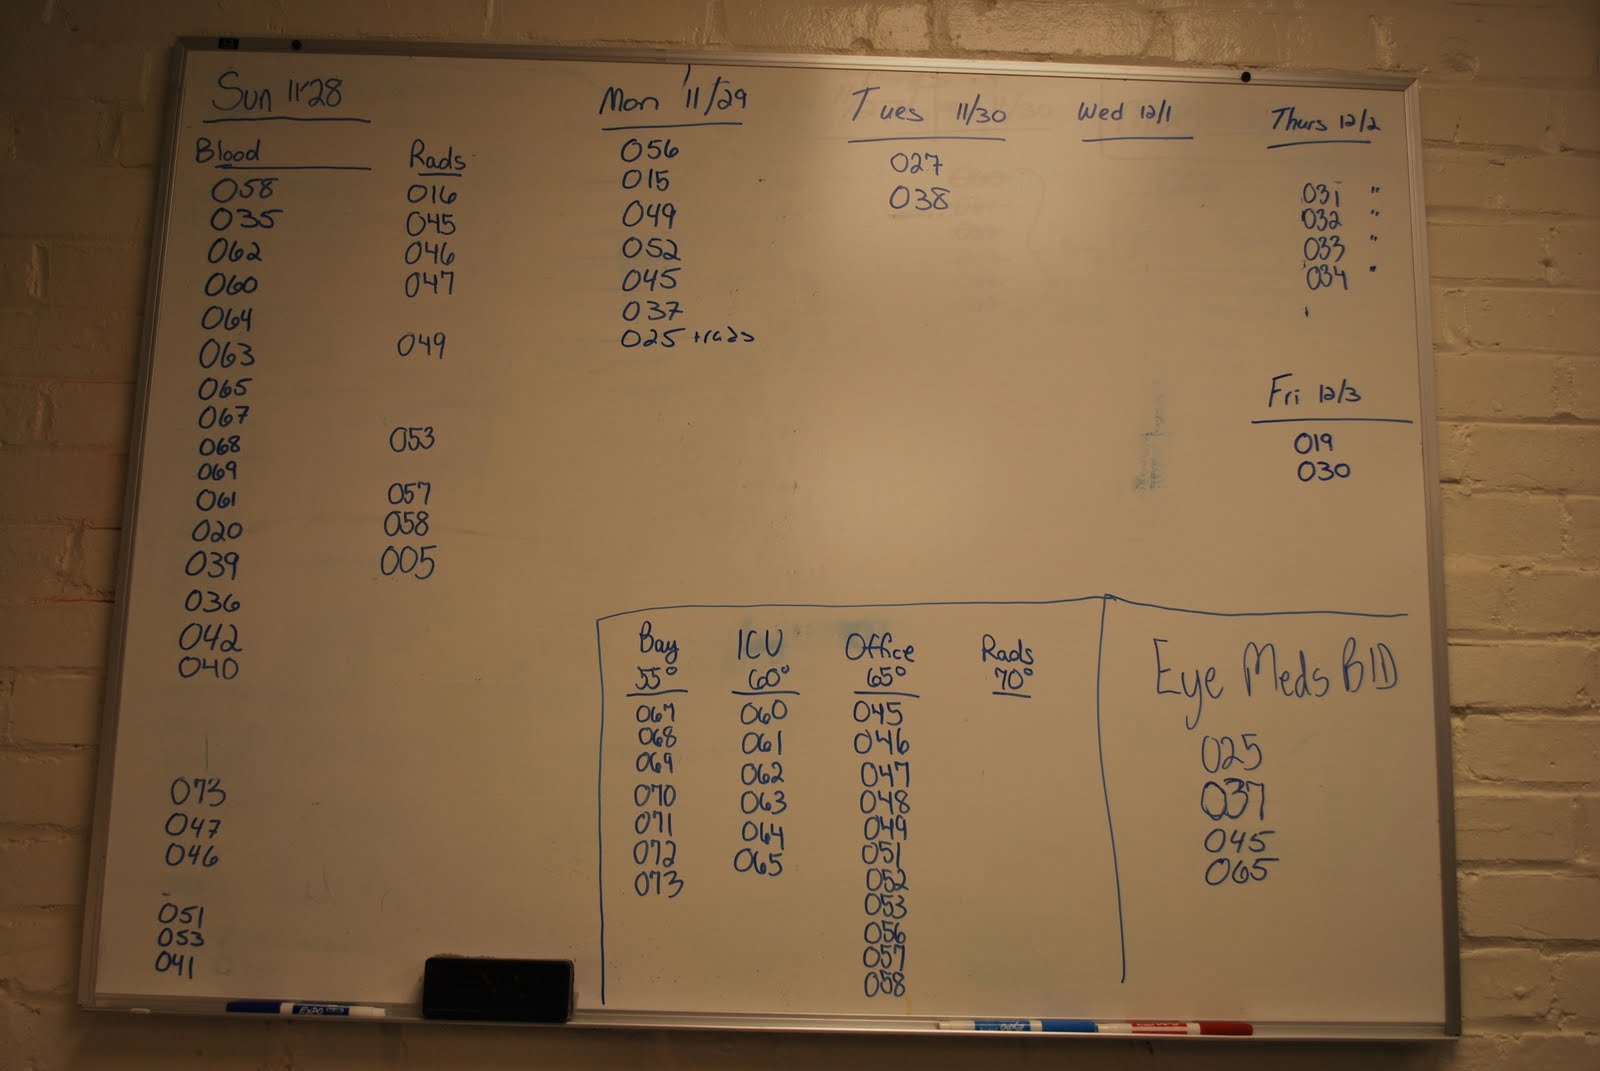 Sun 11/28
Blood
058
035
062
060
064
063
065
067
068
069
061
020
039
036
042
040
073
047
046
051
053
041
Rads
016
045
046
047
049
053
057
058
005
Mon 11/29
056
015
049
052
045
037
025 + rads
Tues 11/30
027
038
Wed 12/1
Thurs 12/2
031 "
032 "
033 "
034 "
Fri 12/3
019
030
Bay
55°
067
068
069
070
071
072
073
ICU
60°
060
061
062
063
064
065
Office
65°
045
046
047
048
049
051
052
053
056
057
058
Rads
70°
Eye Meds BID
025
037
045
065
EXPO